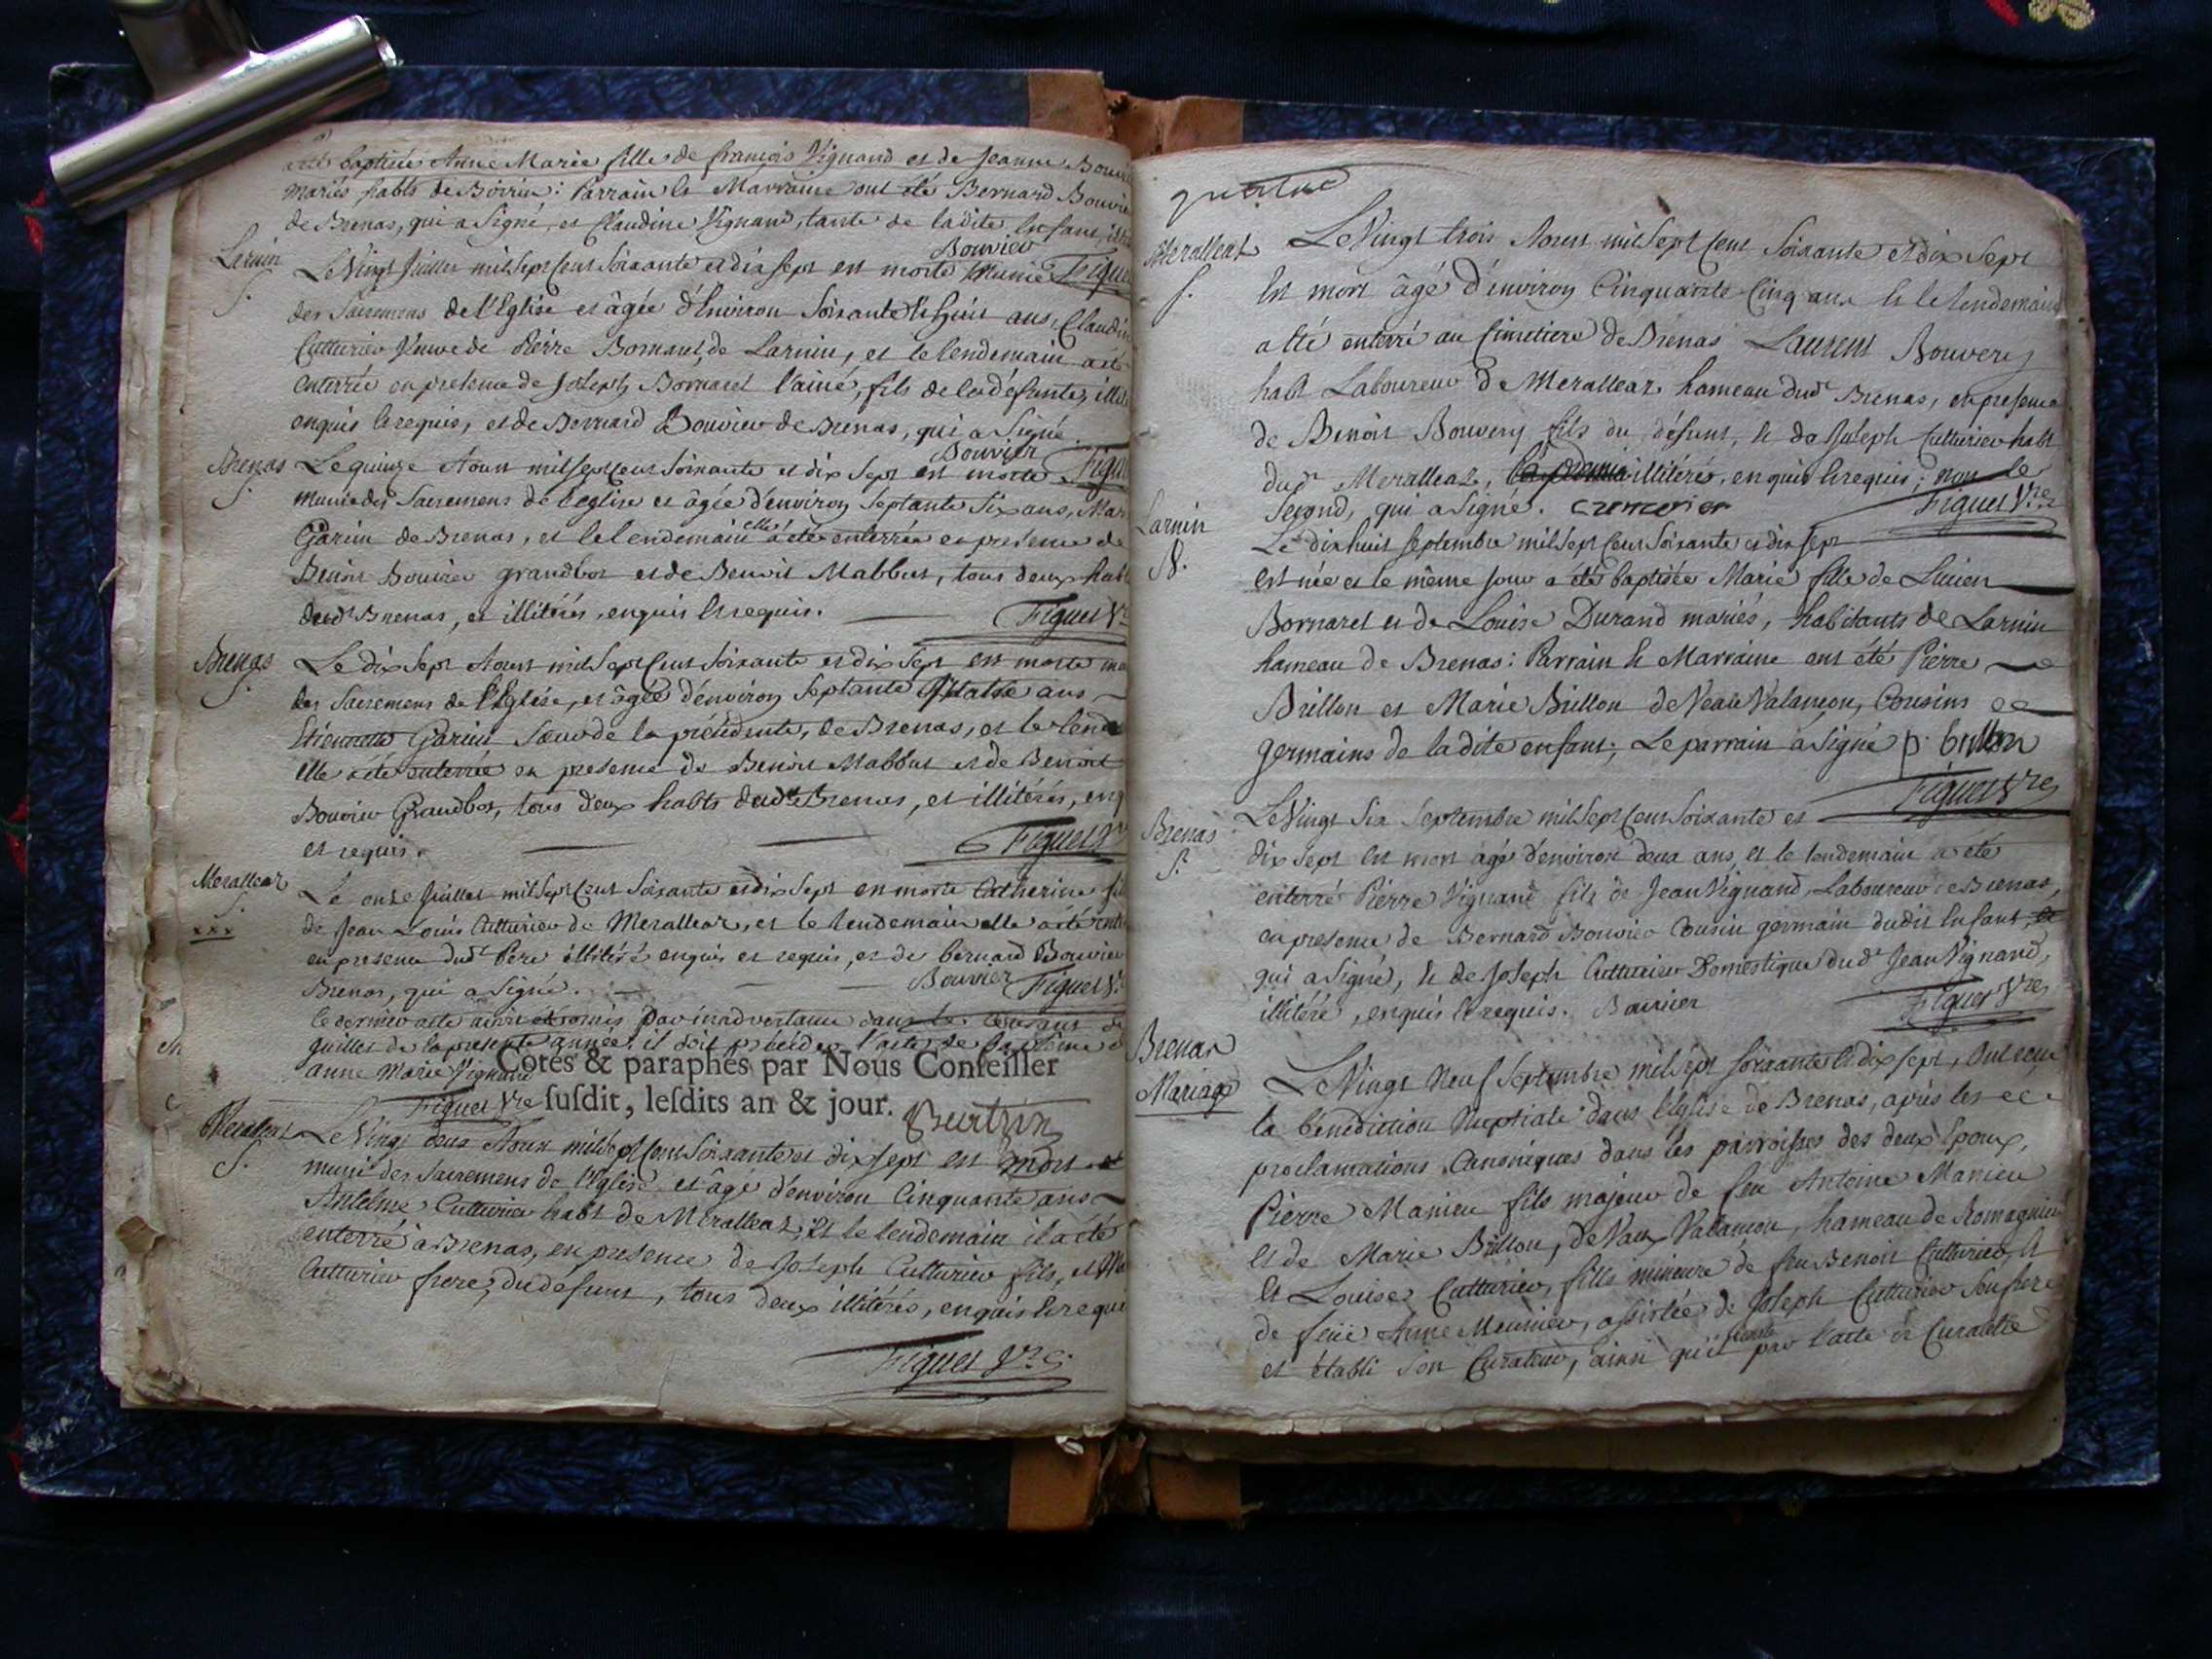 été baptisée Anne Marie fille de françois Vignand et de Jeanne
mariés habts de Boirieu: Parrain & Marraine ont été Bernard Bouvie
de Brenas, qui a Signé, et Claudine Vignand, tante de ladite Enfant,
Bouvier
Larnin
S.
Le Vingt Juillet mil Sept Cent Soixante et dix Sept est morte munie Figue
des Sacremens de l'Eglise et âgée d'Environ Soixante & huit ans, Claudin
Cutturier Veuve de Pierre Bornarel, de Larnin, et le lendemain a été
enterrée en presence de Joseph Bornarel l'ainé, fils de la défunte,
enquis & requis, et de Bernard Bouvier de Brenas, qui a Signé.
Bouvier
Brenas
S.
Le quinze Aoust mil sept cent Soixante et dix Sept est morte Figu
munie des Sacremens de l'eglise et âgée d'environ Septante Six ans, Mar
Garin de Brenas, et le lendemain elle a été enterrée en presence de
Benoit Bouvier grandbot et de Benoit Mabbut, tous deux hab
dud. Brenas, et illitérés, enquis & requis. Figuet V.
Brenas
S.
Le dix Sept Aoust mil Sept Cent Soixante et dix Sept est morte mu
des Sacremens de l'Eglise, et âgée d'environ Septante Quatre ans
Etiennette Garin Sœur de la précédente, de Brenas, et le lend
elle a été enterrée en presence de Benoit Mabbut et de Benoit
Bouvier Grandbot, tous deux habts dud. Brenas, et illitérés, enq
et requis. Figuet
Meralleaz
S.
xxx
Le onze Juillet mil Sept Cent Soixante et dix Sept est morte Catherine fil
de Jean Louis Cutturier de Meralleaz, et le lendemain elle a été ente
en presence dud. Père illitéré enquis et requis, et de bernard Bouvier
Brenas, qui a Signé. Bouvier Figuet V.
le dernier acte omis par inadvertance dans le
juillet de la presente année, il doit précéder l'acte de baptême d
anne Marie Vignand
Figuet Vre
Cotés & paraphés par Nous Conseiller
susdit, lesdits an & jour.
Burtin
Meralleaz
S.
Le Vingt deux Aoust mil Sept Cent Soixante et dix sept est mort
muni des Sacremens de l'Eglise et âgé d'environ Cinquante ans
Antelme Cutturier habt de Meralleaz, et le lendemain il a été
enterré à Brenas, en presence de Joseph Cutturier fils, et
Cutturier frere, du défunt, tous deux illitérés, enquis & requi
Figuet Vre
quatre
Meralleaz
S.
Le Vingt trois Aoust mil Sept Cent Soixante et dix Sept
Est mort âgé d'environ Cinquante Cinq ans & le lendemain
a été enterré au Cimetiere de Brenas Laurent Bouvery
habt Laboureur de Meralleaz hameau dud. Brenas, en presence
de Benoit Bouvery fils du défunt, & de Joseph Cutturier habt
dud. Meralleaz, illitérés, enquis & requis; non le
Second, qui a Signé. Figuet Vre
Larnin
B.
Le dix huit Septembre mil Sept Cent Soixante et dix sept
est née et le même jour a été baptisée Marie fille de Lucien
Bornarel et de Louise Durand mariés, habitants de Larnin
hameau de Brenas: Parrain & Marraine ont été Pierre
Brillon et Marie Brillon de Valançon, Cousins
germains de ladite enfant; Le parrain a Signé p. brillon
Figuet Vre
Brenas
S.
Le Vingt Six Septembre mil Sept Cent Soixante et
dix Sept est mort âgé d'environ deux ans, et le lendemain a été
enterré Pierre Vignand fils de Jean Vignand, Laboureur de Brenas,
en presence de Bernard Bouvier Cousin germain dudit Enfant,
qui a Signé, & de Joseph Cutturier Domestique dud. Jean Vignand,
illitéré, enquis & requis. Bouvier Figuet Vre
Brenas
Mariage
Le Vingt Neuf Septembre mil Sept Soixante & dix sept, Ont reçu
la bénédiction Nuptiale dans l'Eglise de Brenas, après les
proclamations Canoniques dans les parroisses des deux Epoux,
Pierre Manieu fils majeur de feu Antoine Manieu
et de Marie Brillon, de Valançon, hameau de Romagnieu
et Louise Cutturier, fille mineure de feu Benoit Cutturier, &
de feüe Anne Meunier, assistée de Joseph Cutturier Son frere
et établi Son Curateur, ainsi qu'il conste par l'acte de Curatelle